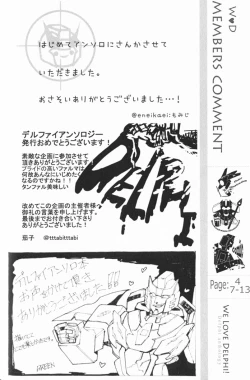 はじめてアンソロにさんかさせて
いただきました。
おさそいありがとうございました…!
@eneikaei:もみじ
デルファイアンソロジー
発行おめでとうございます!
素敵な企画に参加させて
頂きありがとうございます!
プライドの高いファルマは
何故あんなにいじめたく
なるのですかね!!
タンファル美味しい
改めてこの企画の主催者様へ
御礼の言葉を申し上げます。
最後までお付き合い下さり
ありがとうございました!
茄子 @tttabitttabi
デルファイアンソロ
お声かけて頂き
ありがとうございました!!
W♥D
MEMBERS COMMENT
Page: 4
7-13
WE LOVE DELPHI!